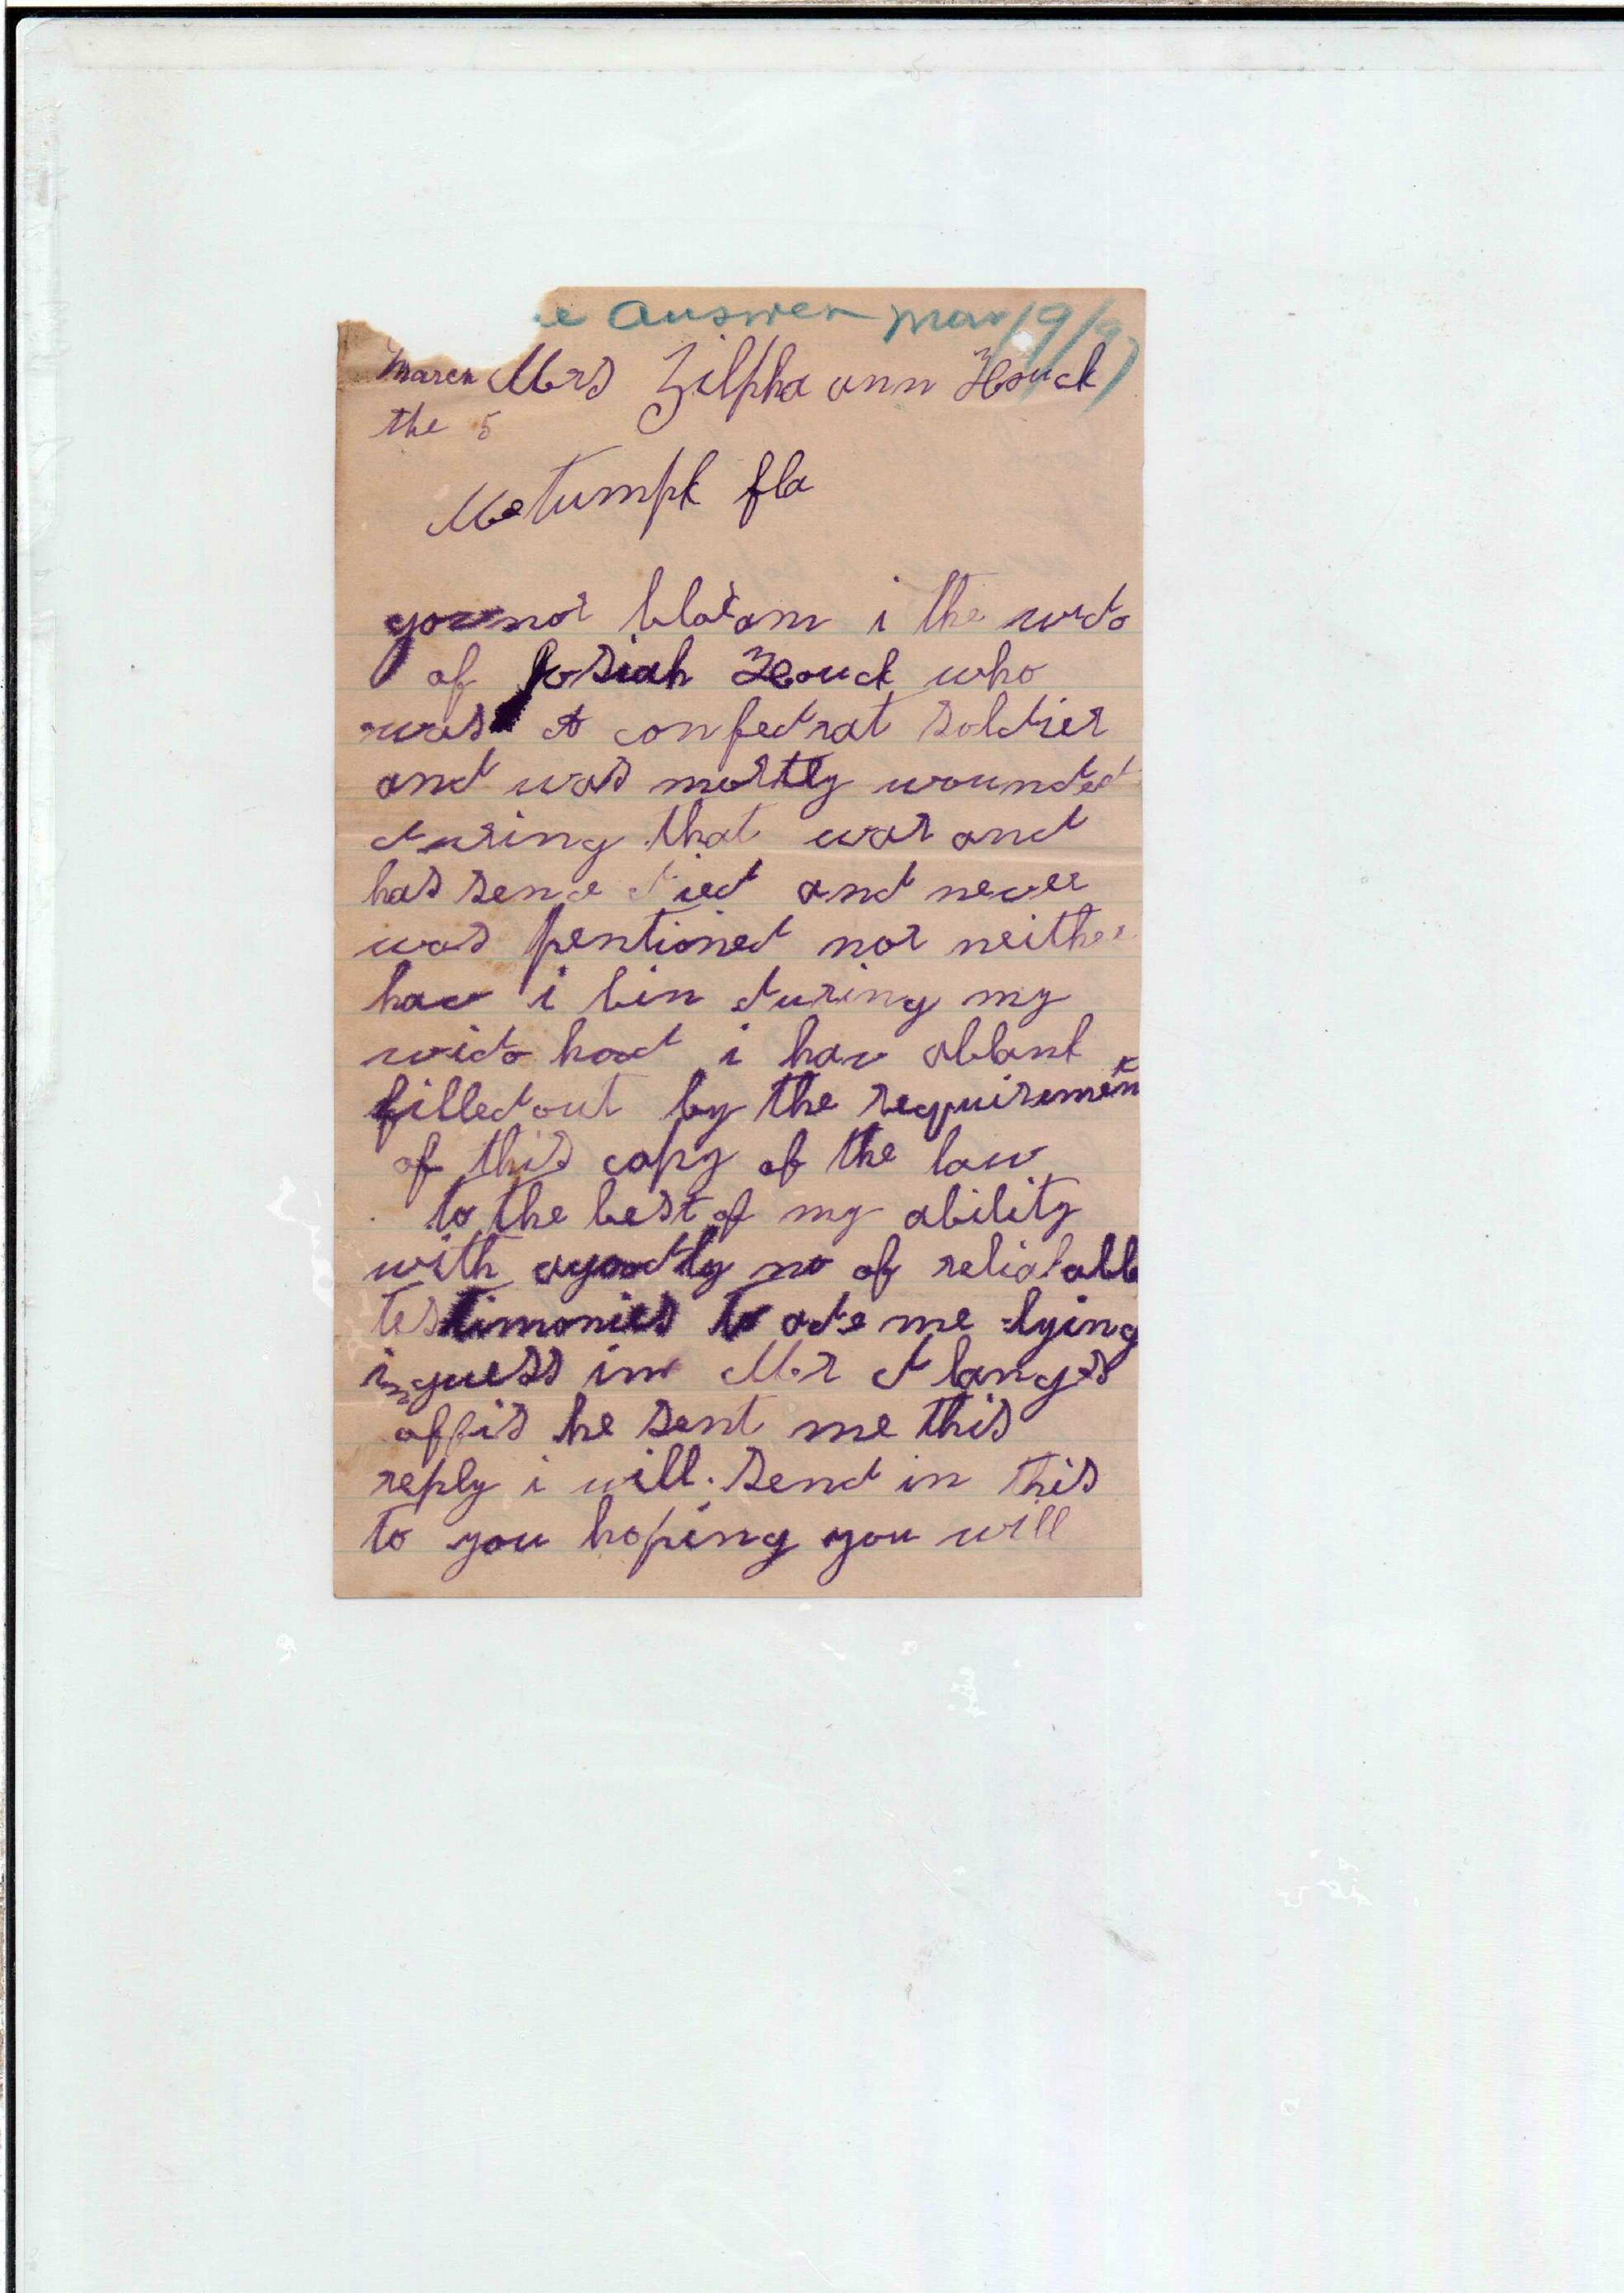 Answer mar/9/97
March Mrs Zilpha ann Houck
the 5
Wetumpk fla
governor bloxam i the wido
of Josiah Houck who
was a confedrat soldier
and was mortly wounded
during that war and
has senc died and never
was pentioned nor neither
hav i bin during my
wido hood i hav ablank
filled out by the requirement
of this copy of the law
to the best of my ability
with agoodly no of reliabable
testimonies to ade me lying
in guess in Mr d langs
offis he sent me this
reply i will send in this
to you hoping you will